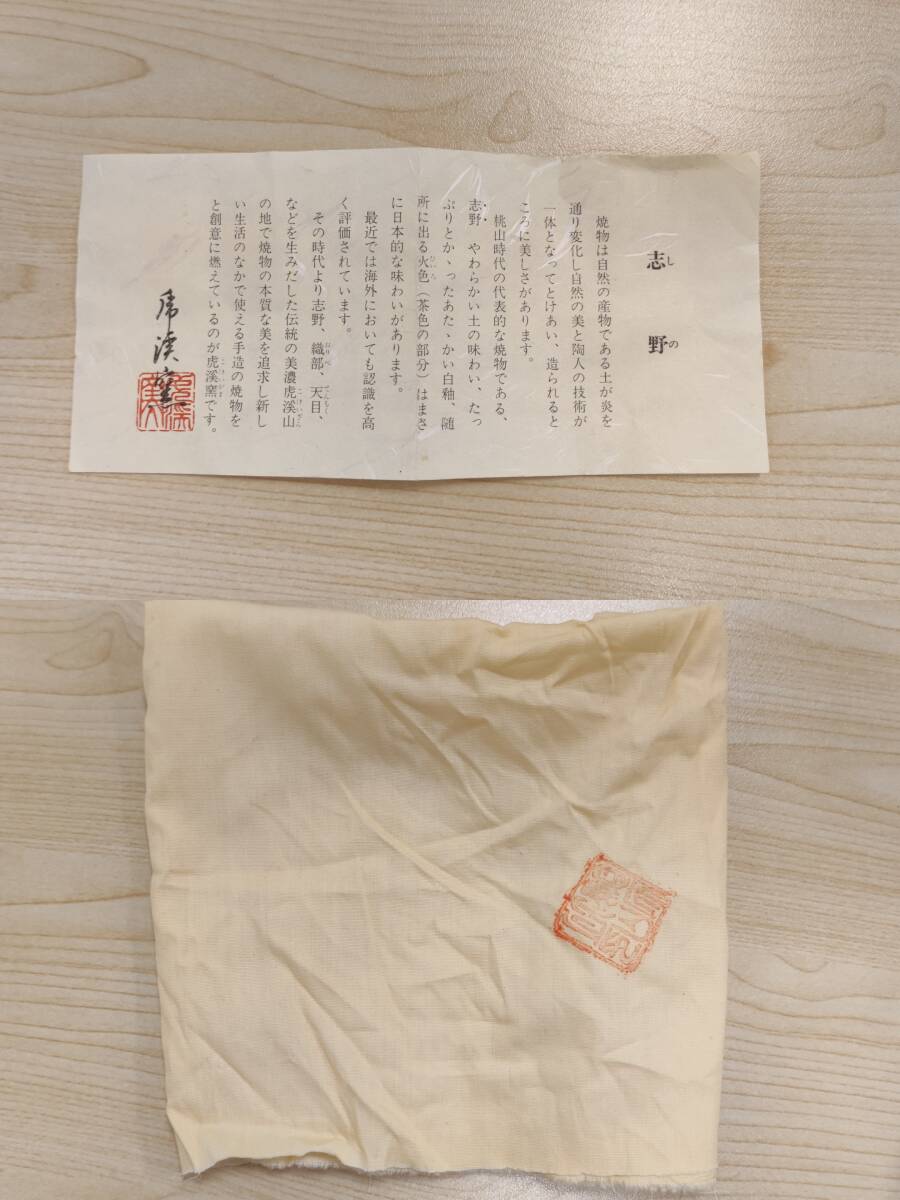 志野
しの
焼物は自然の産物である土が炎を
通り変化し自然の美と陶人の技術が
一体となってとけあい、造られると
ころに美しさがあります。
桃山時代の代表的な焼物である、
志野、やわらかい土の味わい、たっ
ぷりとかゝったあたゝかい白釉、随
所に出る火色（茶色の部分）はまさ
に日本的な味わいがあります。
最近では海外においても認識を高
く評価されています。
その時代より志野、織部、天目、
おりべ
てんもく
などを生みだした伝統の美濃虎溪山
こけいざん
の地で焼物の本質な美を追求し新し
い生活のなかで使える手造の焼物を
と創意に燃えているのが虎溪窯です。
虎溪窯